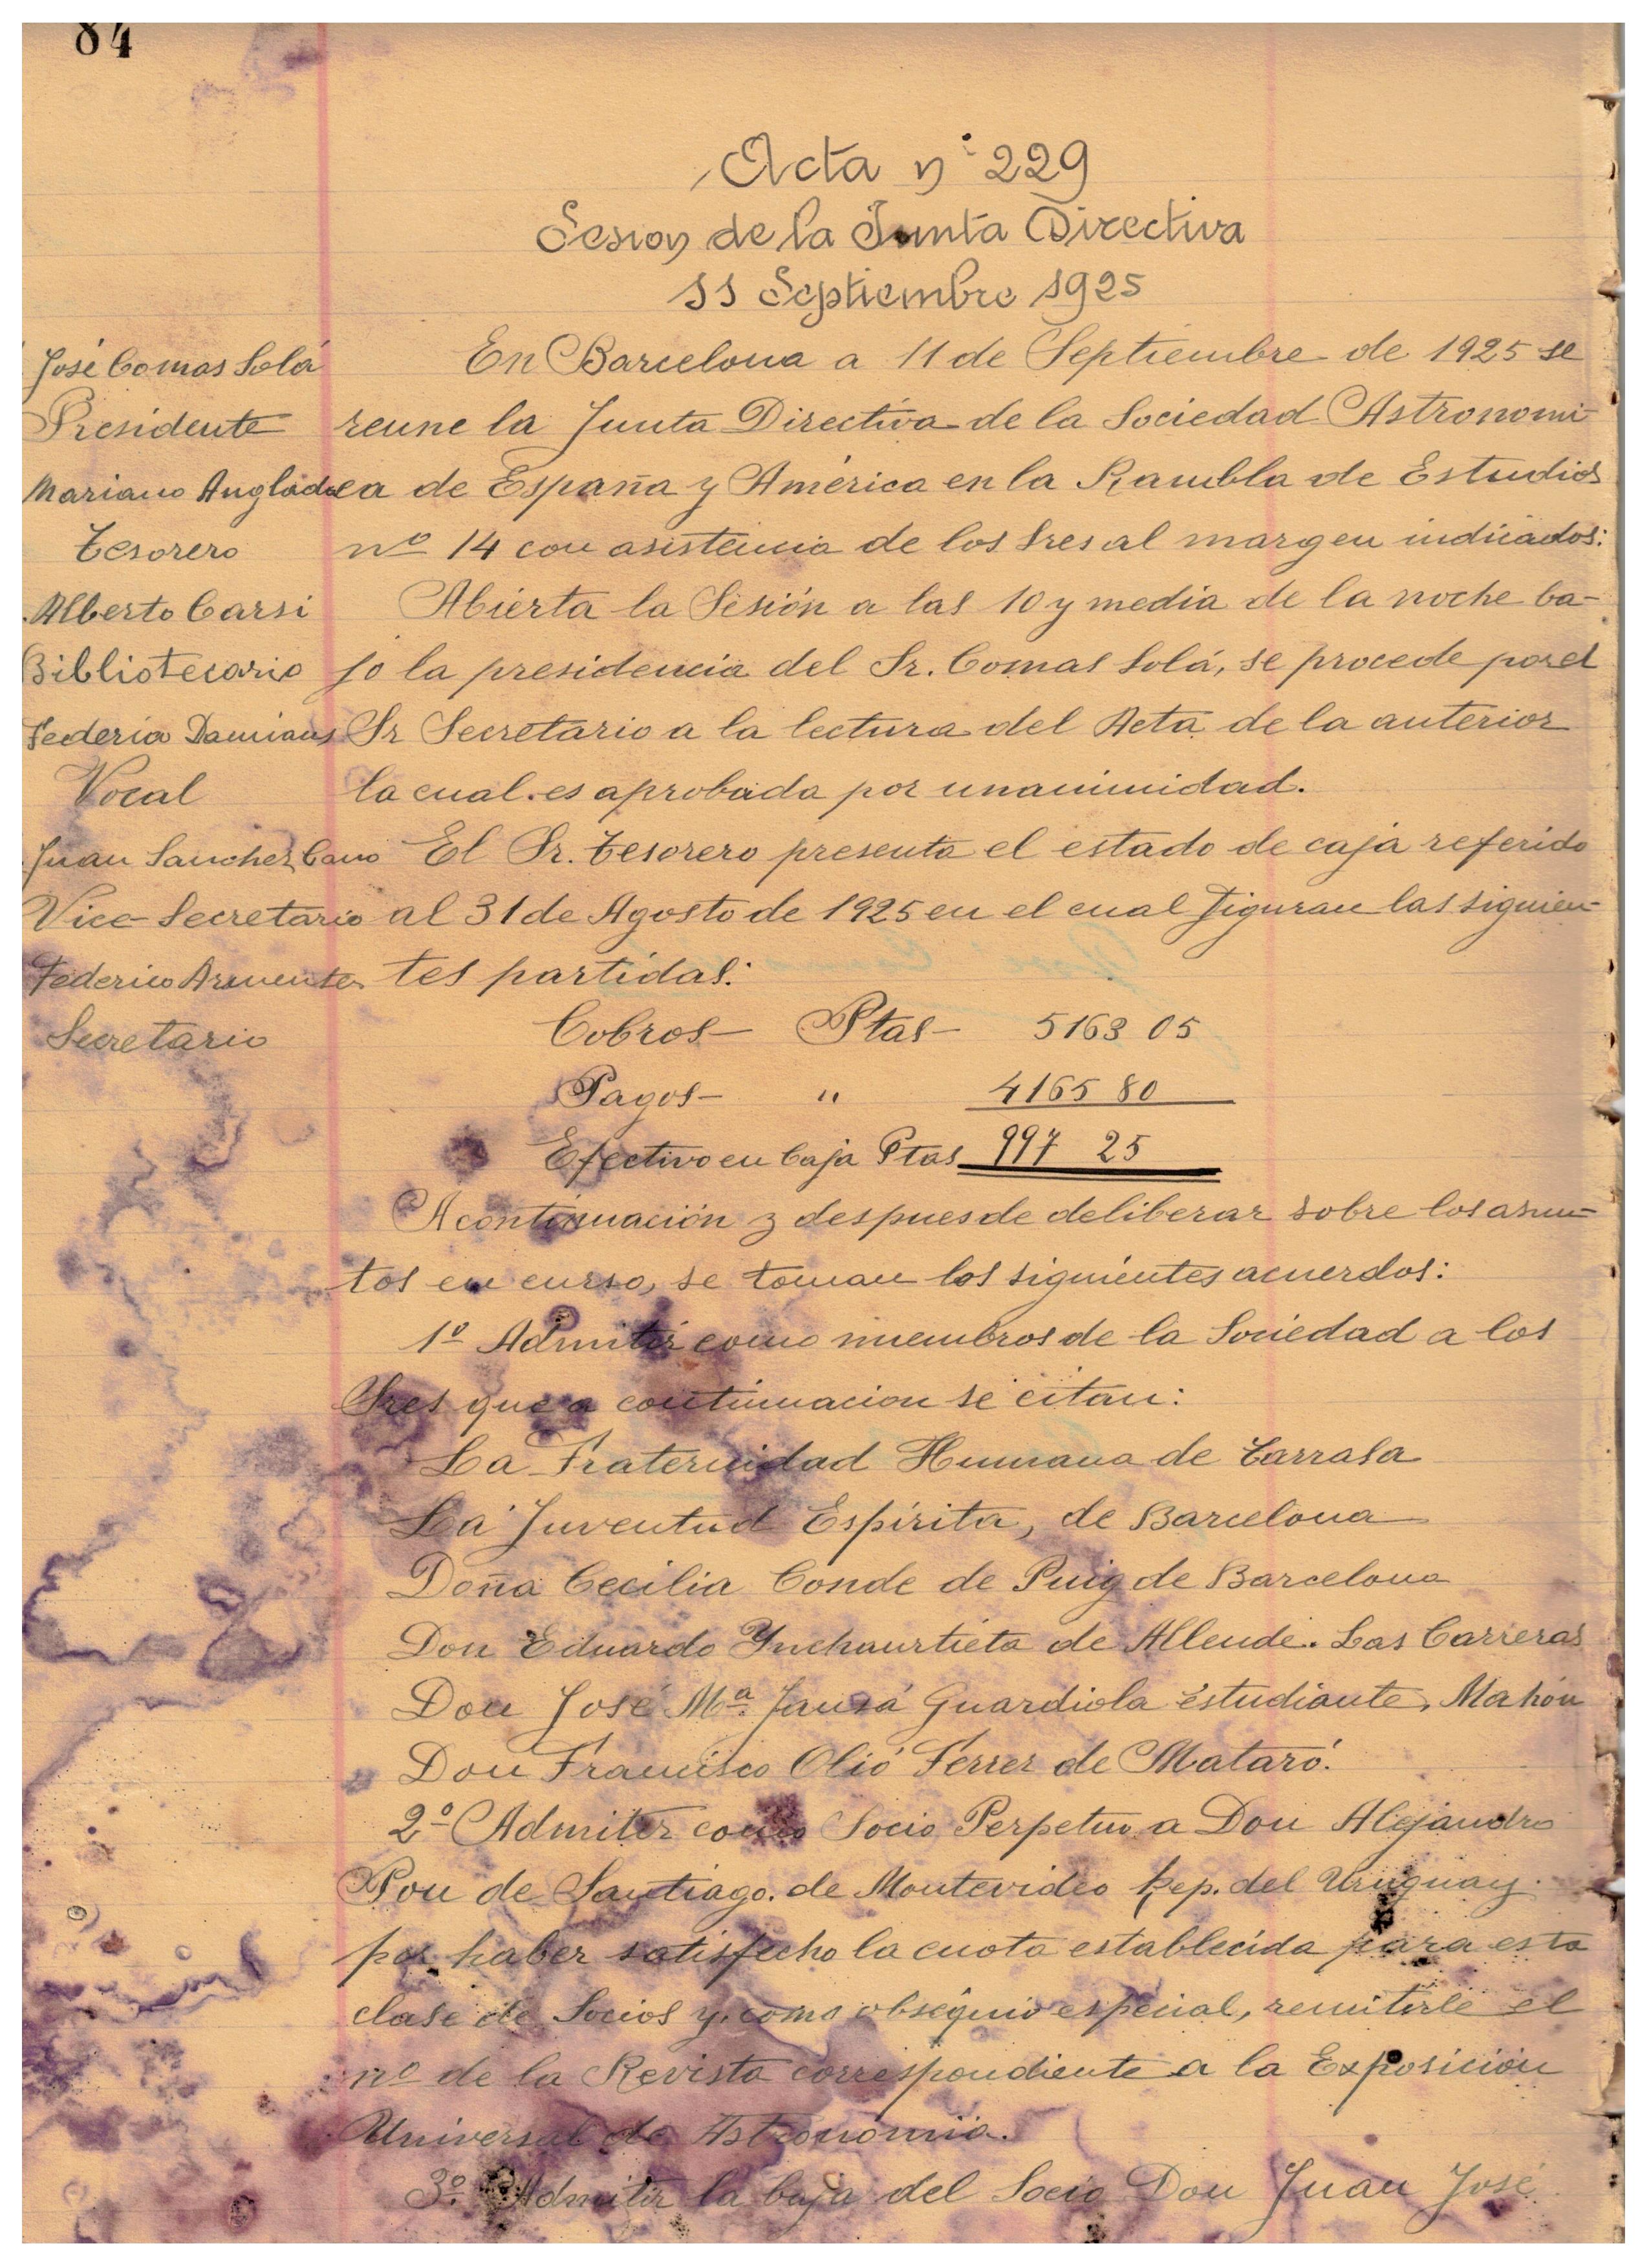 84
Acta nº 229
Sesion de la Junta Directiva
11 Septiembre 1925
José Comas Solá
Presidente
Mariano Anglada
Tesorero
Alberto Carsi
Bibliotecario
Federico Damians
Vocal
Juan Sanchez Cano
Vice-Secretario
Federico Armenter
Secretario
En Barcelona a 11 de Septiembre de 1925 se
reune la Junta Directiva de la Sociedad Astronomi-
ca de España y América en la Rambla de Estudios
nº 14 con asistencia de los Sres al margen indicados:
Abierta la Sesión a las 10 y media de la noche ba-
jo la presidencia del Sr. Comas Solá, se procede por el
Sr Secretario a la lectura del Acta de la anterior
la cual es aprobada por unanimidad.
El Sr. Tesorero presenta el estado de caja referido
al 31 de Agosto de 1925 en el cual figuran las siguien-
tes partidas:
Cobros- Ptas- 5163 05
Pagos- " 4165 80
Efectivo en Caja Ptas 997 25
A continuación y despues de deliberar sobre los asun-
tos en curso, se toman los siguientes acuerdos:
1º Admitir como miembros de la Sociedad a los
Sres que a continuacion se citan:
La Fraternidad Humana de Tarrasa
La Juventud Espírita, de Barcelona
Doña Cecilia Conde de Puig de Barcelona
Don Eduardo Ynchaurtieta de Allende. Las Carreras
Don José Mª. Jansá Guardiola estudiante, Mahón
Don Francisco Olió Ferrer de Mataró.
2º Admitir como Socio Perpetuo a Don Alejandro
Pou de Santiago. de Montevideo Rep. del Uruguay.
por haber satisfecho la cuota establecida para esta
clase de Socios y, como obsequio especial, remitirle el
nº de la Revista correspondiente a la Exposición
Universal de Astronomia.
3º. Admitir la baja del Socio Don Juan José